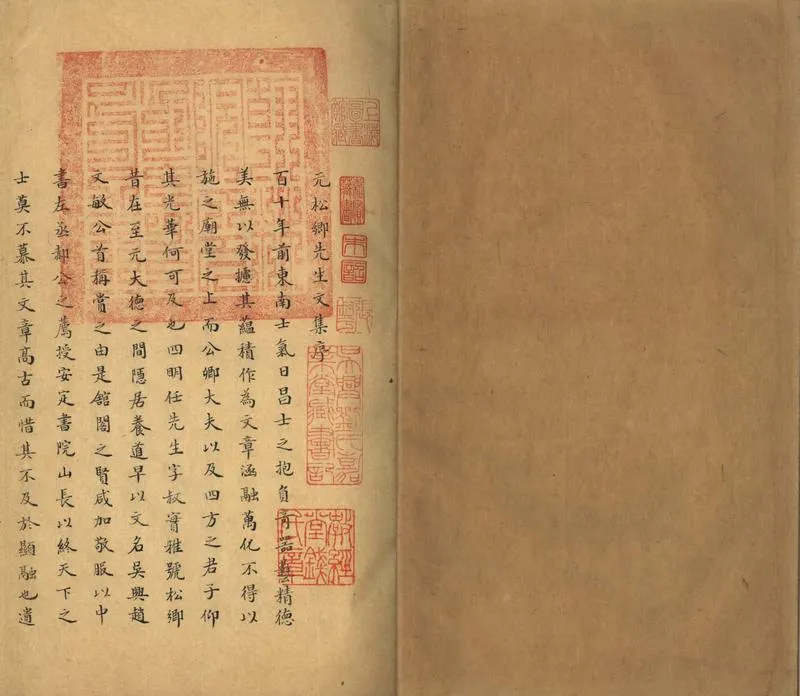 元松鄉先生文集序
百十年前東南士氣日昌士之抱負竒器蓺精德
美無以發攄其蘊積作為文章涵融萬化不得以
施之廟堂之上而公卿大夫以及四方之君子仰
其光華何可及也四明任先生字叔實雅號松鄉
昔在至元大德之間隱居養道早以文名吳興趙
文敏公首稱賞之由是舘閣之賢咸加敬服以中
書左丞郝公之薦授安定書院山長以終天下之
士莫不慕其文章高古而惜其不及於顯融也遺
吳興劉氏嘉業堂藏書記
教經堂錢氏章